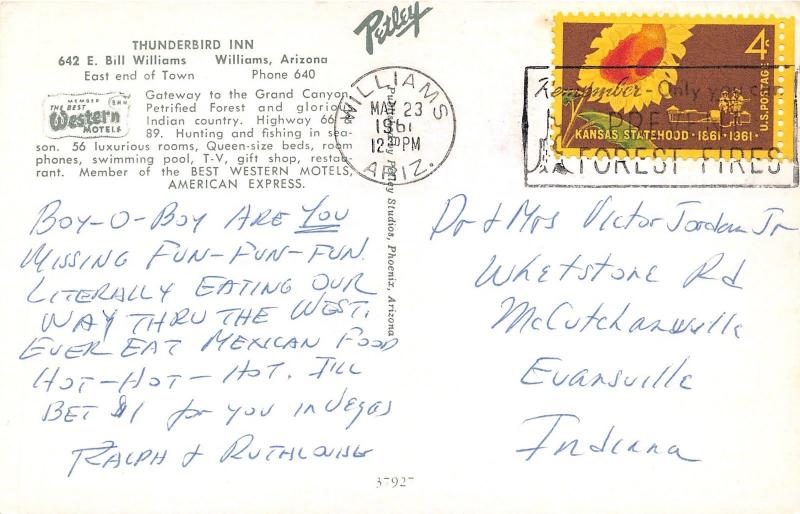 Petley
THUNDERBIRD INN
642 E. Bill Williams Williams, Arizona
East end of Town Phone 640
MEMBER BWM
THE BEST
Western
MOTELS
Gateway to the Grand Canyon,
Petrified Forest and glorious
Indian country. Highway 66 &
89. Hunting and fishing in sea-
son. 56 luxurious rooms, Queen-size beds, room
phones, swimming pool, T-V, gift shop, restau-
rant. Member of the BEST WESTERN MOTELS,
AMERICAN EXPRESS.
BOY-O-BOY ARE YOU
MISSING FUN-FUN-FUN.
LITERALLY EATING OUR
WAY THRU THE WEST.
EVER EAT MEXICAN FOOD
HOT-HOT-HOT. ILL
BET $1 for you in Vegas
RALPH & RUTHLOUISE
Petley Studios, Phoenix, Arizona
WILLIAMS
MAY 23
1961
12 PM
ARIZ.
Remember-Only you can
PREVENT
FOREST FIRES
4c
U.S. POSTAGE
KANSAS STATEHOOD · 1861-1961
Dr & Mrs Victor Jordan Jr
Whetstone Rd
McCutchanville
Evansville
Indiana
37927